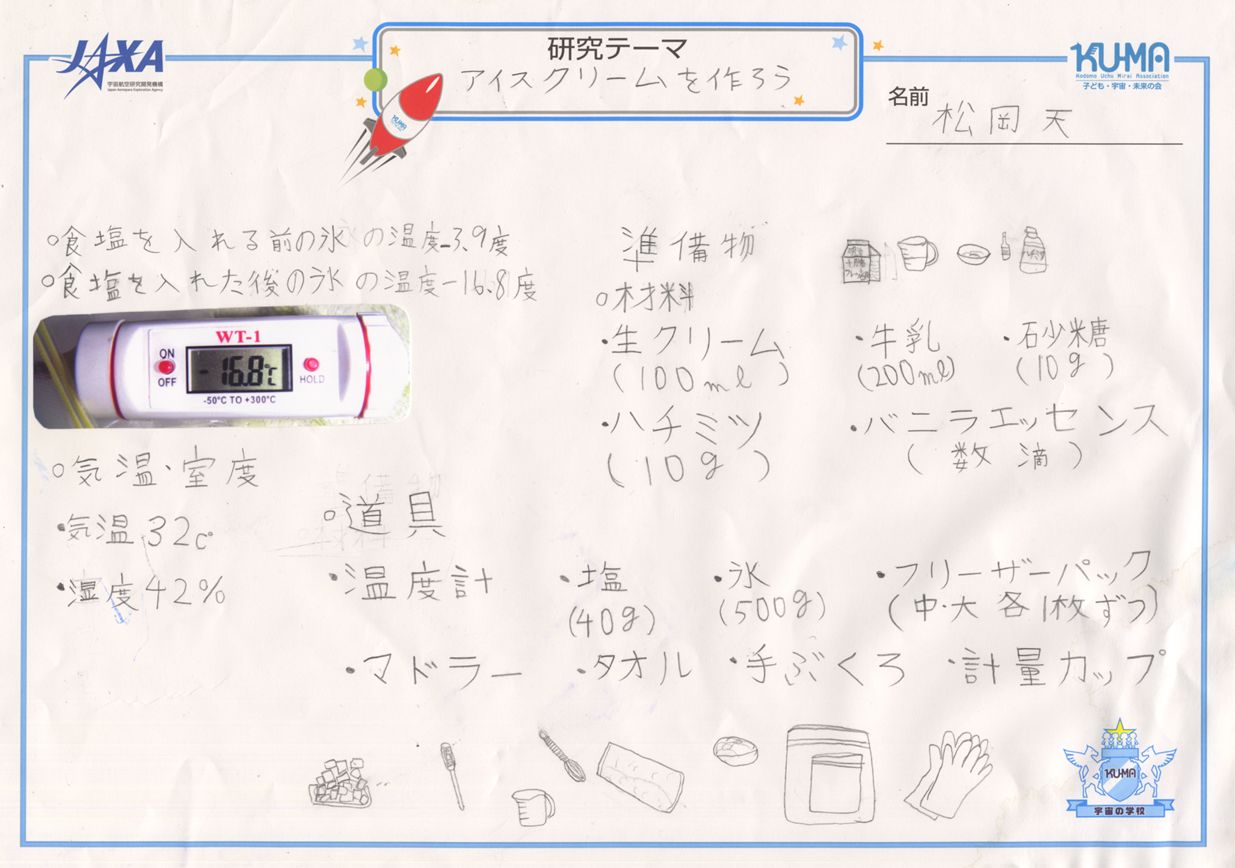 JAXA
宇宙航空研究開発機構
Japan Aerospace Exploration Agency
研究テーマ
アイスクリームを作ろう
KUMA
Kodomo Uchu Mirai Association
子ども・宇宙・未来の会
名前 松岡天
KUMA
○食塩を入れる前の氷の温度-3.9度
○食塩を入れた後の氷の温度-16.8度
WT-1
ON
OFF
-16.8℃
HOLD
-50°C TO +300°C
○気温・室度
・気温32c°
・湿度42%
準備物
○材料
・生クリーム
(100ml)
・牛乳
(200ml)
・砂糖
(10g)
・ハチミツ
(10g)
・バニラエッセンス
(数滴)
○道具
・温度計
・塩
(40g)
・氷
(500g)
・フリーザーパック
(中・大 各1枚ずつ)
・マドラー
・タオル
・手ぶくろ
・計量カップ
KU-MA
宇宙の学校